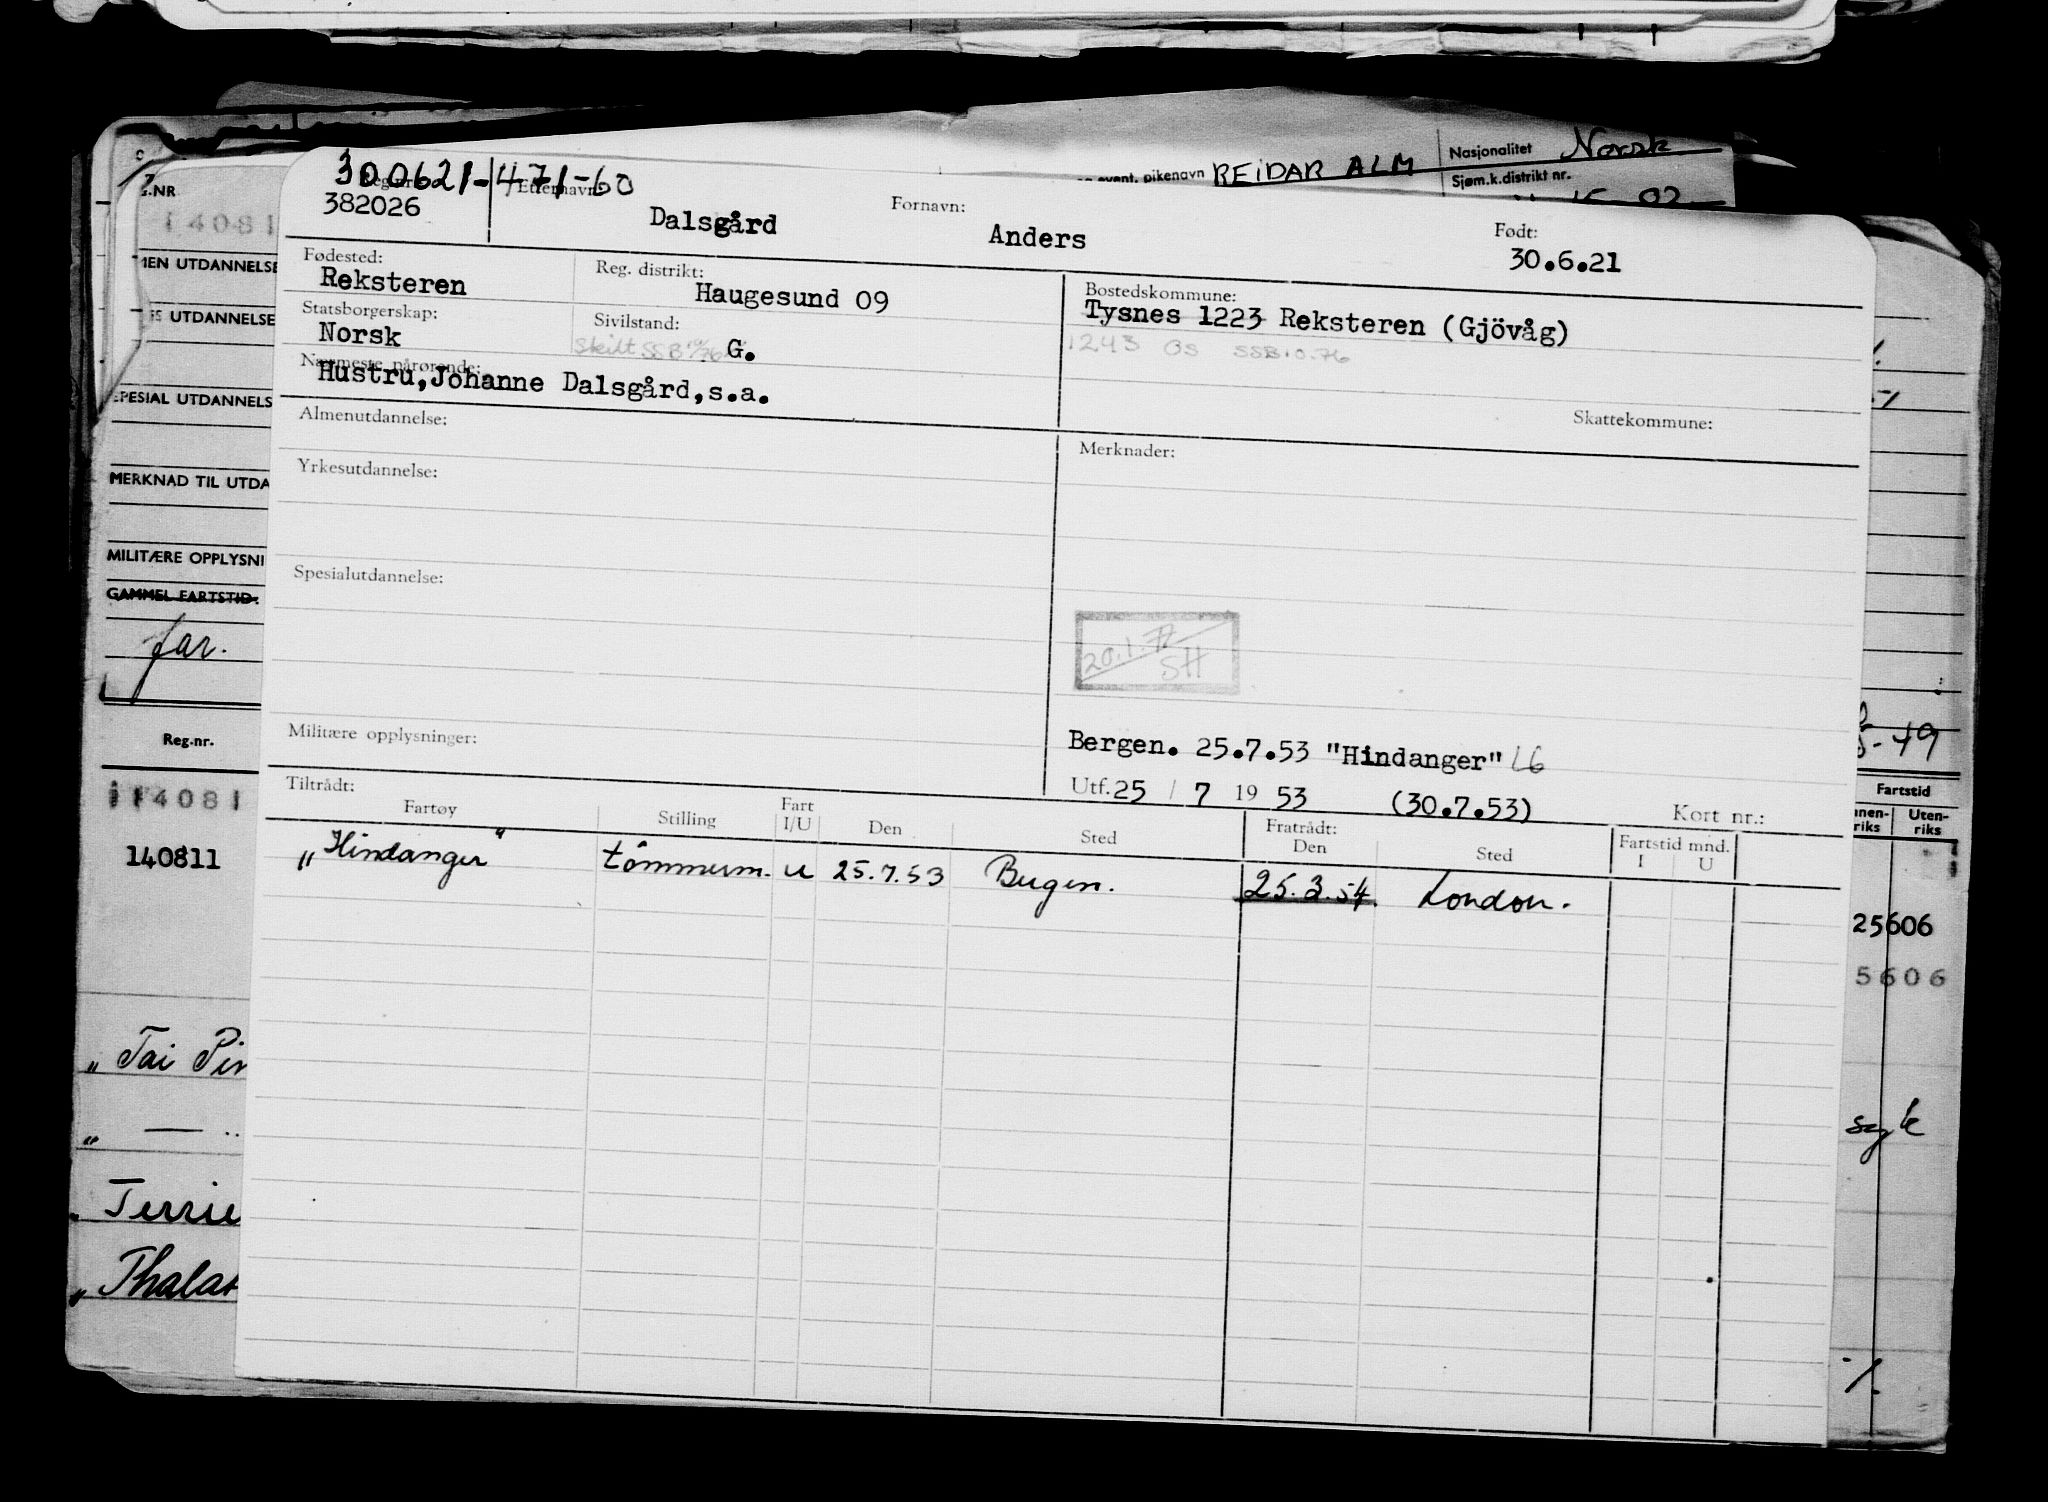 event. pikenavn REIDAR ALM Nasjonalitet Norsk
Sjøm.k.distrikt nr.
300621-471-60
Etternavn:
382026 Dalsgård Fornavn: Anders Født: 30.6.21
Fødested: Reksteren Reg. distrikt: Haugesund 09 Bostedskommune: Tysnes 1223 Reksteren (Gjövåg)
Statsborgerskap: Norsk Sivilstand: G. Skilt SSB 10/76 1243 OS SSB 10.76
Nærmeste pårørende: Hustru, Johanne Dalsgård, s.a.
Skattekommune:
Almenutdannelse: Merknader:
Yrkesutdannelse:
Spesialutdannelse:
20.1.77
SH
Militære opplysninger: Bergen. 25.7.53 "Hindanger" LG
Utf. 25 / 7 19 53 (30.7.53) Kort nr.:
Tiltrådt: Fratrådt:
Fartøy Stilling Fart I/U Den Sted Den Sted Fartstid mnd. I U
„Hindanger" tömmerm. u 25.7.53 Bergen. 25.3.54. London.
NR
14081
MEN UTDANNELSE
UTDANNELSE
SPESIAL UTDANNELS
MERKNAD TIL UTDA
MILITÆRE OPPLYSNI
GAMMEL FARTSTID:
far.
Reg.nr.
114081
140811
„Tai Pin
„ — ..
Terrie
„Thalat
19
Fartstid
nnen-riks Uten-riks
25606
5606
syk